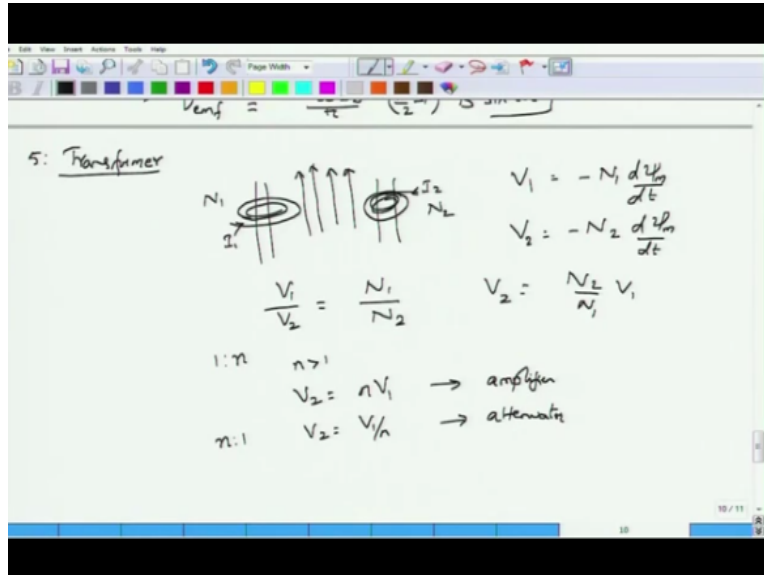 Edit View Insert Actions Tools Help
Page Width
V_emf =
5: Transformer
N₁ I₁ I₂ N₂
V₁ = - N₁ dψₘ/dt
V₂ = - N₂ dψₘ/dt
V₁/V₂ = N₁/N₂ V₂ = N₂/N₁ V₁
1:n n>1
V₂ = nV₁ → amplifier
n:1 V₂ = V₁/n → attenuator
10 / 11
10